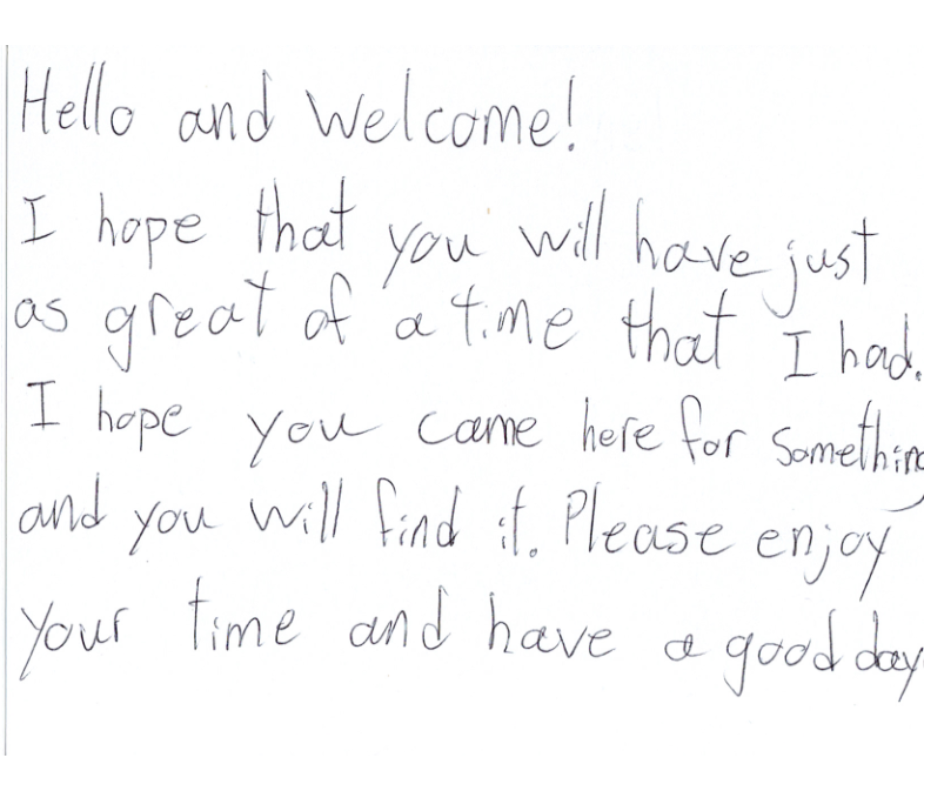 Hello and Welcome!
I hope that you will have just
as great of a time that I had.
I hope you came here for something
and you will find it. Please enjoy
your time and have a good day